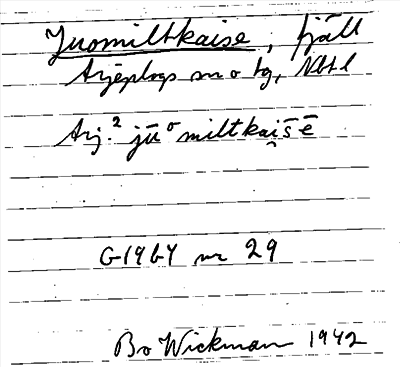 Juomiltkaise, fjäll
Arjeplogs sn o tg, Nbtl
Arj.² jūᵒmiltkai̯šē
G1964 nr 29
Bo Wickman 1942